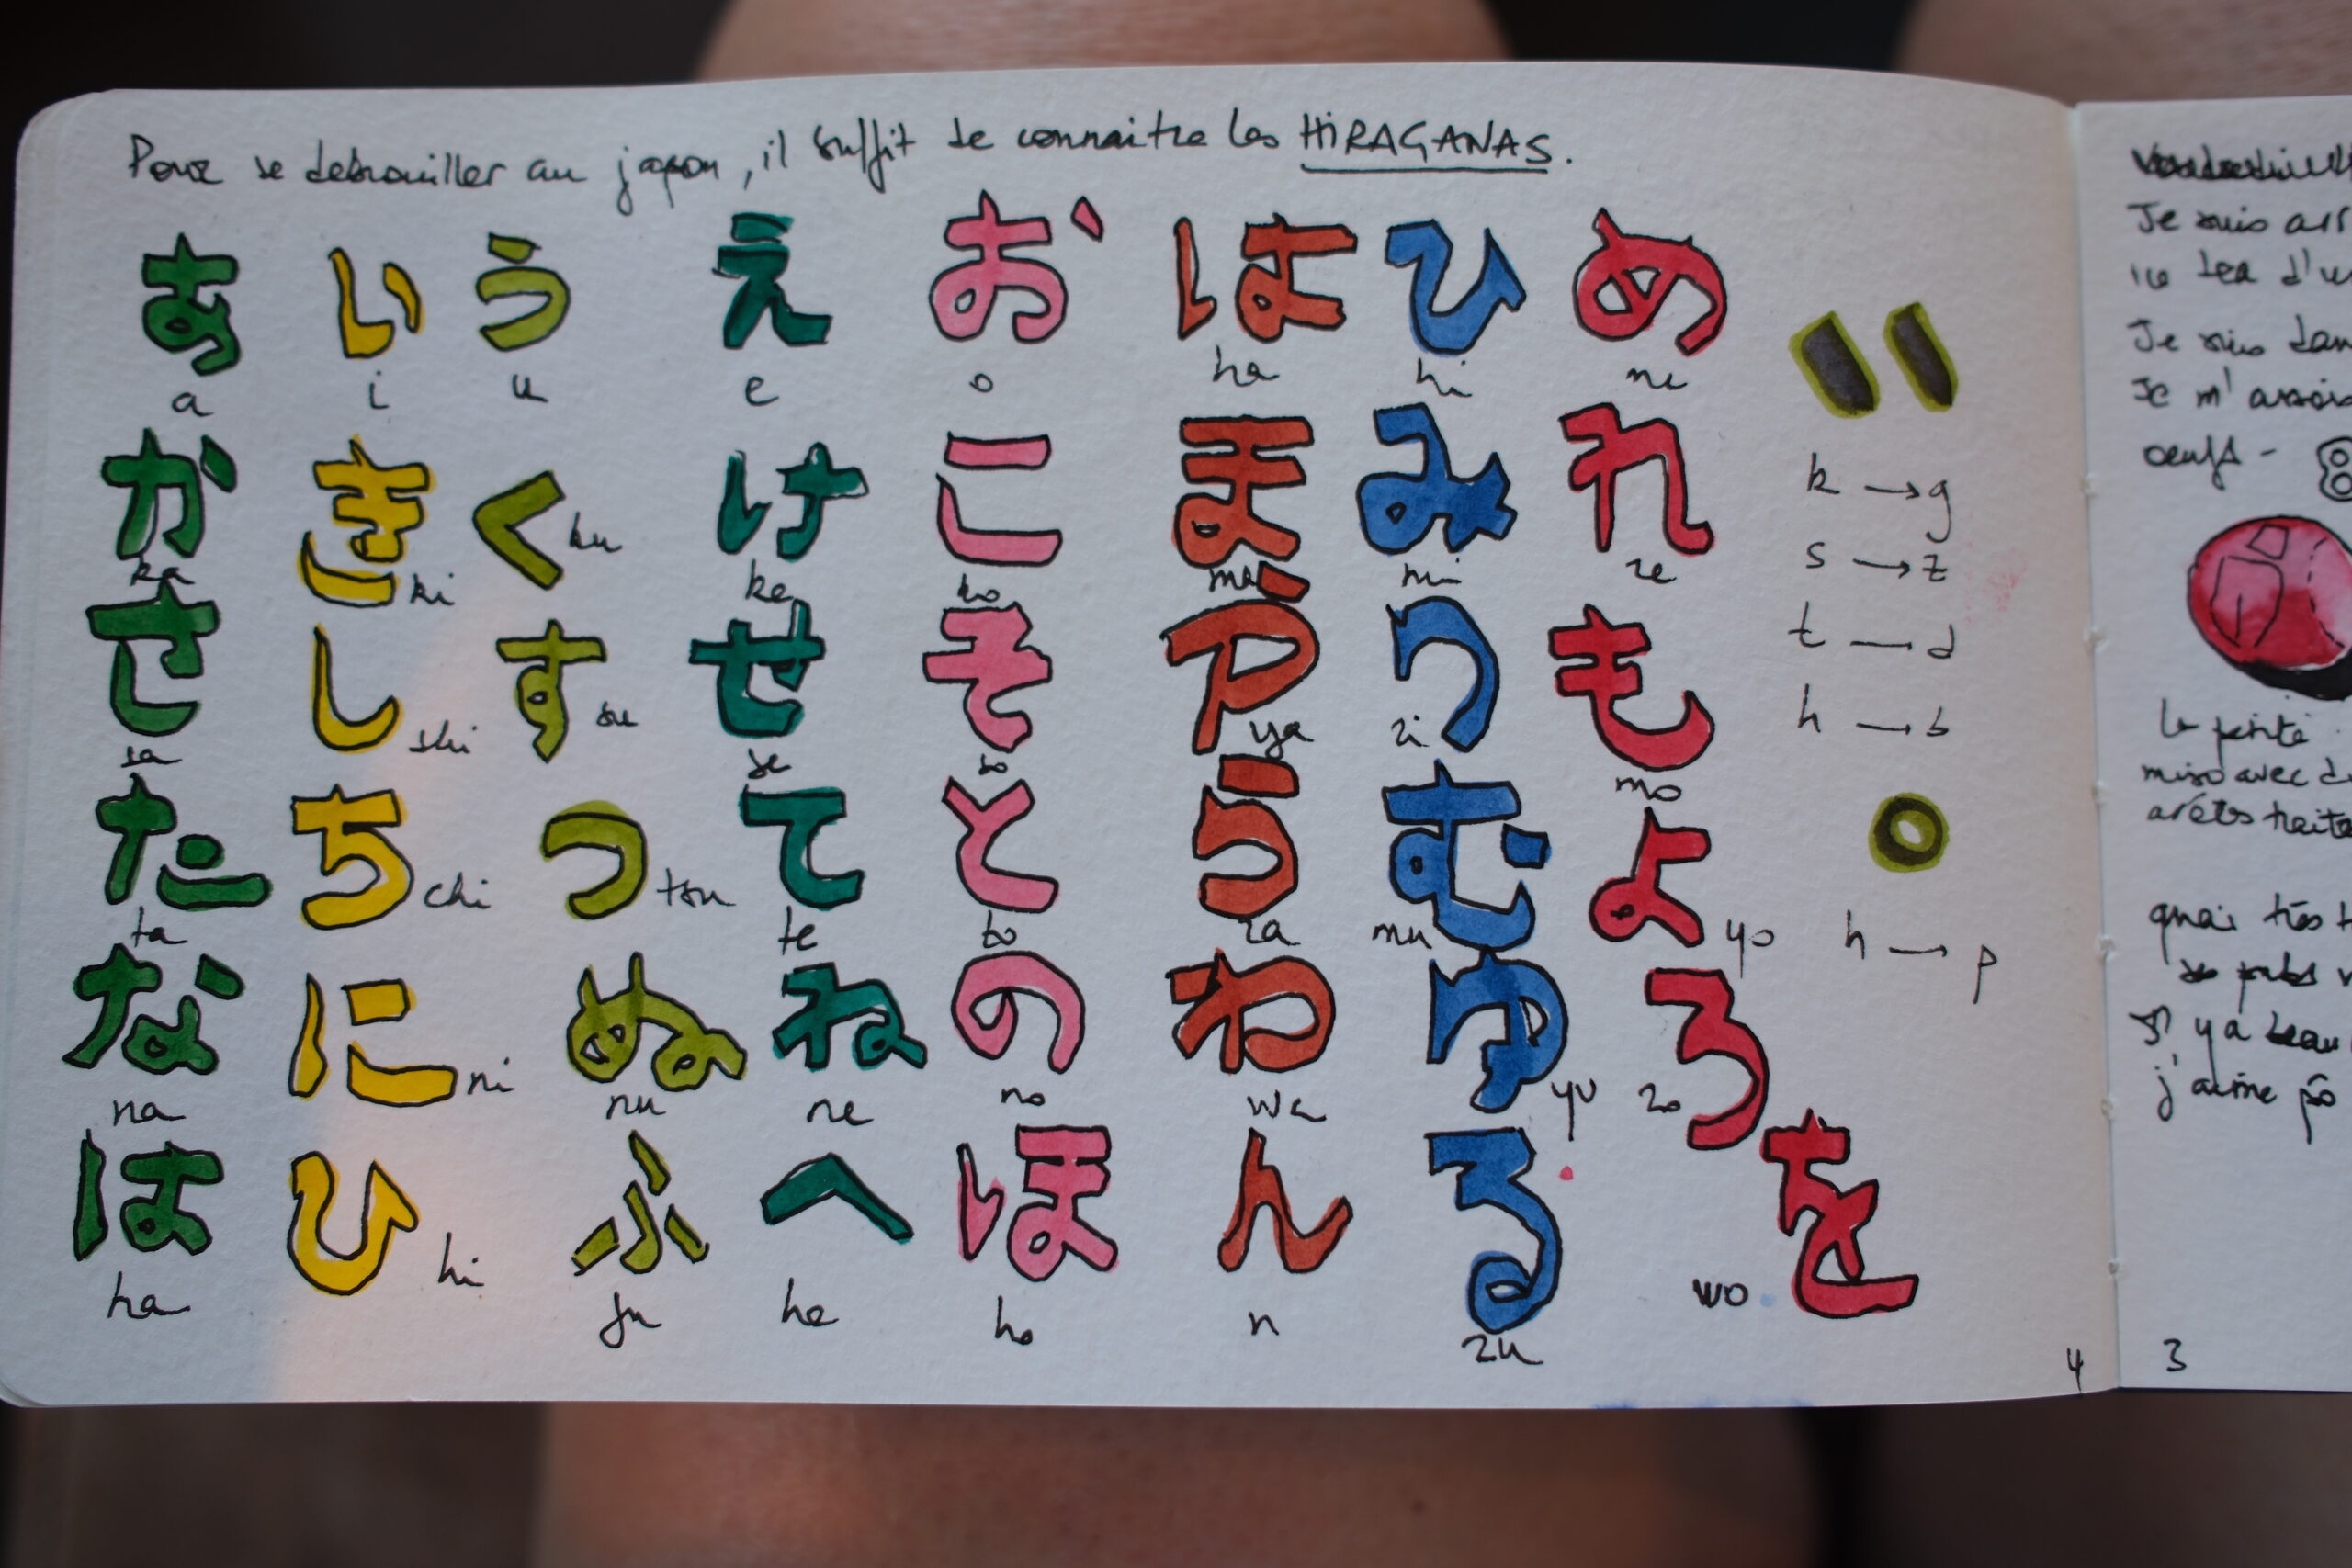 Pour se debrouiller au japon, il suffit de connaitre les HIRAGANAS.
あ い う え お は ひ め
a i u e o ha hi me
か き く け こ ま み れ
ka ki ku ke ko ma mi re
k → g
さ し す せ そ や り も
sa shi su se so ya ri mo
s → z
t → d
h → b
た ち つ て と ら む よ
ta chi tsu te to ra mu yo
h → p
な に ぬ ね の わ ゆ ろ
na ni nu ne no wa yu ro
は ひ ふ へ ほ ん る を
ha hi fu he ho n ru wo
4
Je suis arr
Je suis dan
Je m'assois
oeufs -
la petite
miso avec d
quai très t
j'aime pô
3